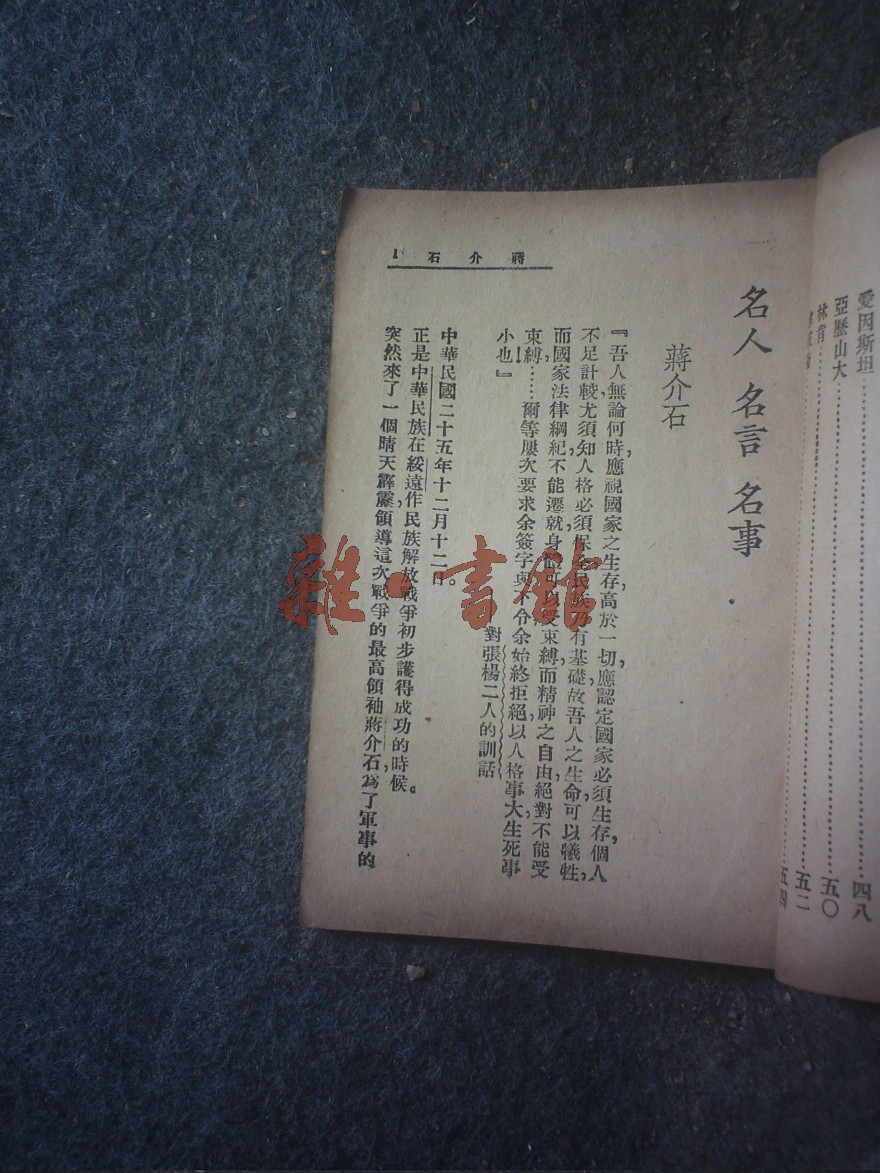 愛因斯坦……四八
亞歷山大……五〇
林肯……五二
五四
名人 名言 名事
蔣介石
1 石 介 蔣
『吾人無論何時，應視國家之生存高於一切，應認定國家必須生存，個人
不足計較，尤須知人格必須保全，民族乃有基礎，故吾人之生命可以犧牲，
而國家法律綱紀不能遷就，身體可以受束縛，而精神之自由絕對不能受
束縛……爾等屢次要求余簽字與下令，余始終拒絕，以人格事大，生死事
小也』
對張楊二人的訓話
中華民國二十五年十二月十二日。
正是中華民族在綏遠作民族解放戰爭初步護得成功的時候。
突然來了一個晴天霹靂，領導這次戰爭的最高領袖蔣介石，為了軍事的
雜·書館